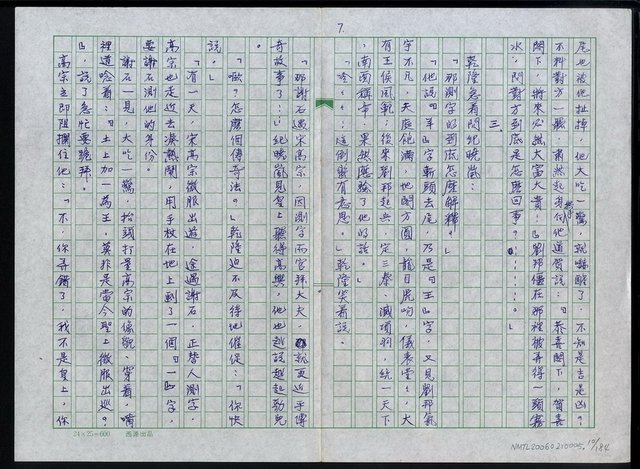 7.
尾也被他扯掉，他大吃一驚，就嚇醒了，不知是吉是凶？
不料對方一聽，肅然起身向他道賀說：『恭喜閣下，賀喜
閣下，將來必然大富大貴！』劉邦僵在那裡被弄得一頭霧
水，問對方到底是怎麼回事？……。」
三、
乾隆急着問紀曉嵐：
「那測字的到底怎麼解釋？」
「他說『羊』字斬頭去尾，乃是『王』字，又見劉邦氣
宇不凡，天庭飽滿，地閣方圓，龍目虎吻，儀表堂堂，大
有王侯風範，後來劉邦起兵定三秦、滅項羽，統一天下
，南面稱帝，果然應驗了他的話。」
「唸……這倒頗有意思。」乾隆笑着說。
「那謝石遇宋高宗，因測字而官拜大夫，就更近乎傳
奇故事了……」紀曉嵐見皇上聽得高興，他也越說越起勁兒
。
「噢？怎麼個傳奇法？」乾隆迫不及待地催促：「你快
說。」
「有一天，宋高宗微服出遊，途遇謝石，正替人測字，
高宗也走近去湊熱鬧，用手杖在地上劃了一個『一』字，
要謝石測他的身份。
謝石一見，大吃一驚，抬頭打量高宗的像貌、穿着，嘴
裡道唸着：『土上加一為王，莫非是當今聖上微服出巡？
』，說了急忙要跪拜。
高宗立即阻攔住他：『不，你弄錯了，我不是皇上，你
24×25=600 西源出品
NMTL20060210005.10/184